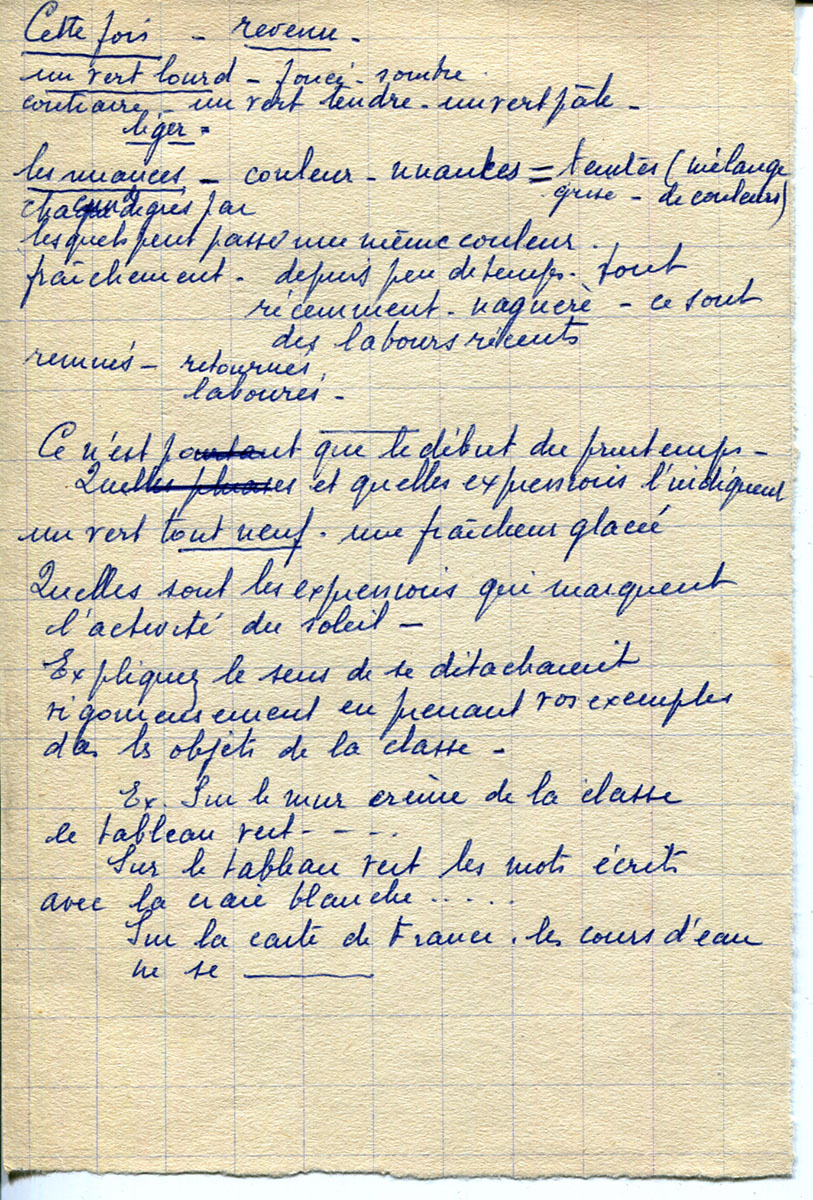 Cette fois - revenu -
un vert lourd - foncé - sombre.
contraire - un vert tendre - un vert pâle -
léger =
les nuances - couleur - nuances = teintes (mélange
grise - de couleurs)
chacun degrés par
lesquels peut passer une même couleur.
fraîchement - depuis peu de temps. tout
récemment - naguère - ce sont
des labours récents
remués - retournés,
labourés -
Ce n'est pourtant que le début du printemps -
Quelles phrases et quelles expressions l'indiquent
un vert tout neuf. une fraîcheur glacée
Quelles sont les expressions qui marquent
l'activité du soleil -
Expliquez le sens de se détachaient
vigoureusement en prenant vos exemples
das les objets de la classe -
Ex. Sur le mur crème de la classe
le tableau vert - - - .
Sur le tableau vert les mots écrits
avec la craie blanche .....
Sur la carte de France. les cours d'eau
ne se ______